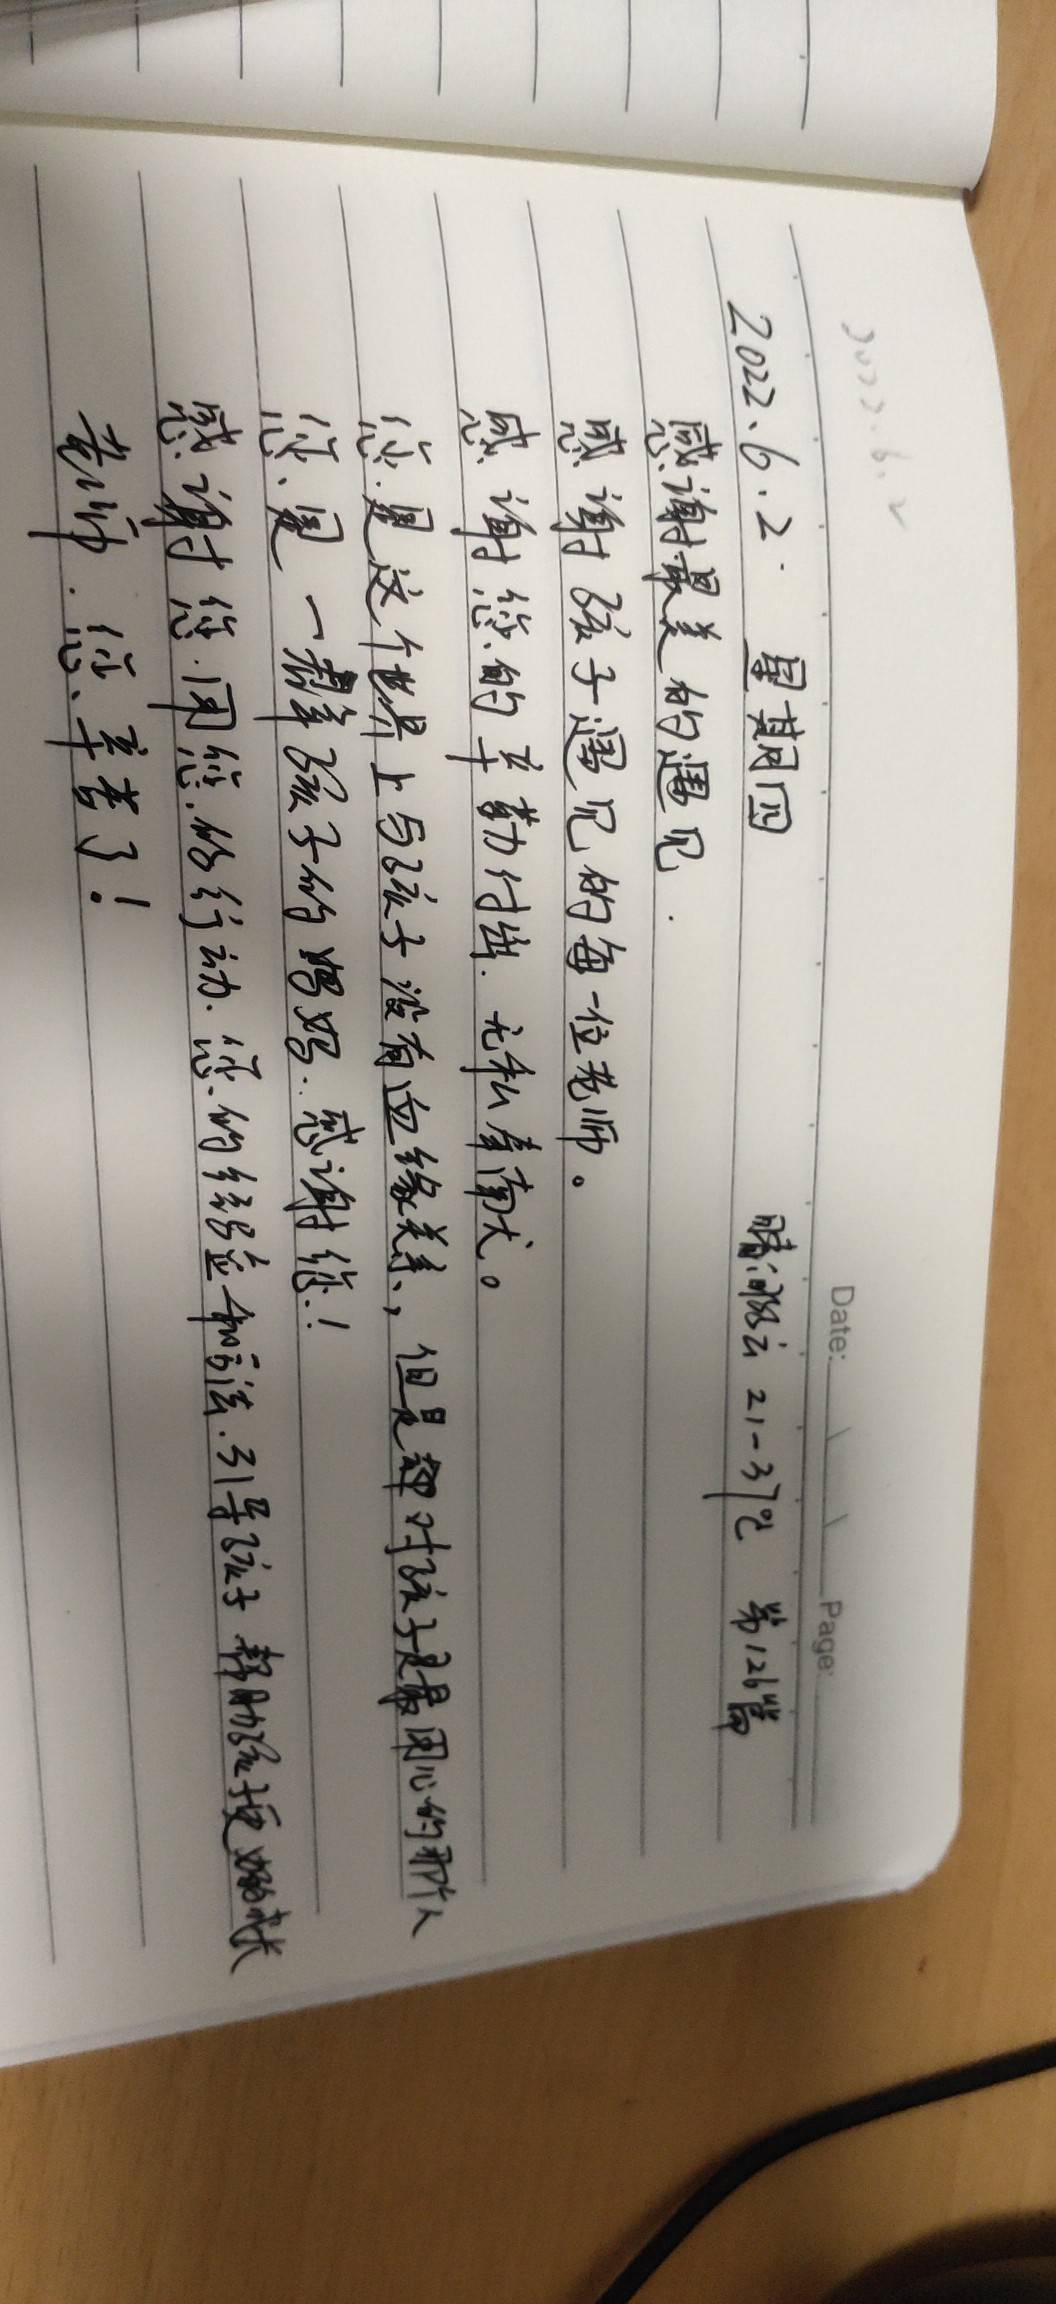 Date: Page:
2022.6.2
2022.6.2. 星期四 晴间多云 21-37℃ 第126篇
感谢最美的遇见.
感谢孩子遇见的每一位老师。
感谢您的辛勤付出.无私奉献。
您是这个世界上与孩子没有血缘关系,但是却对孩子最用心的那个人
您是一群孩子的妈妈.感谢您!
感谢您.用您的行动.您的经验和方法.引导孩子帮助孩子更好的成长
老师.您辛苦了!